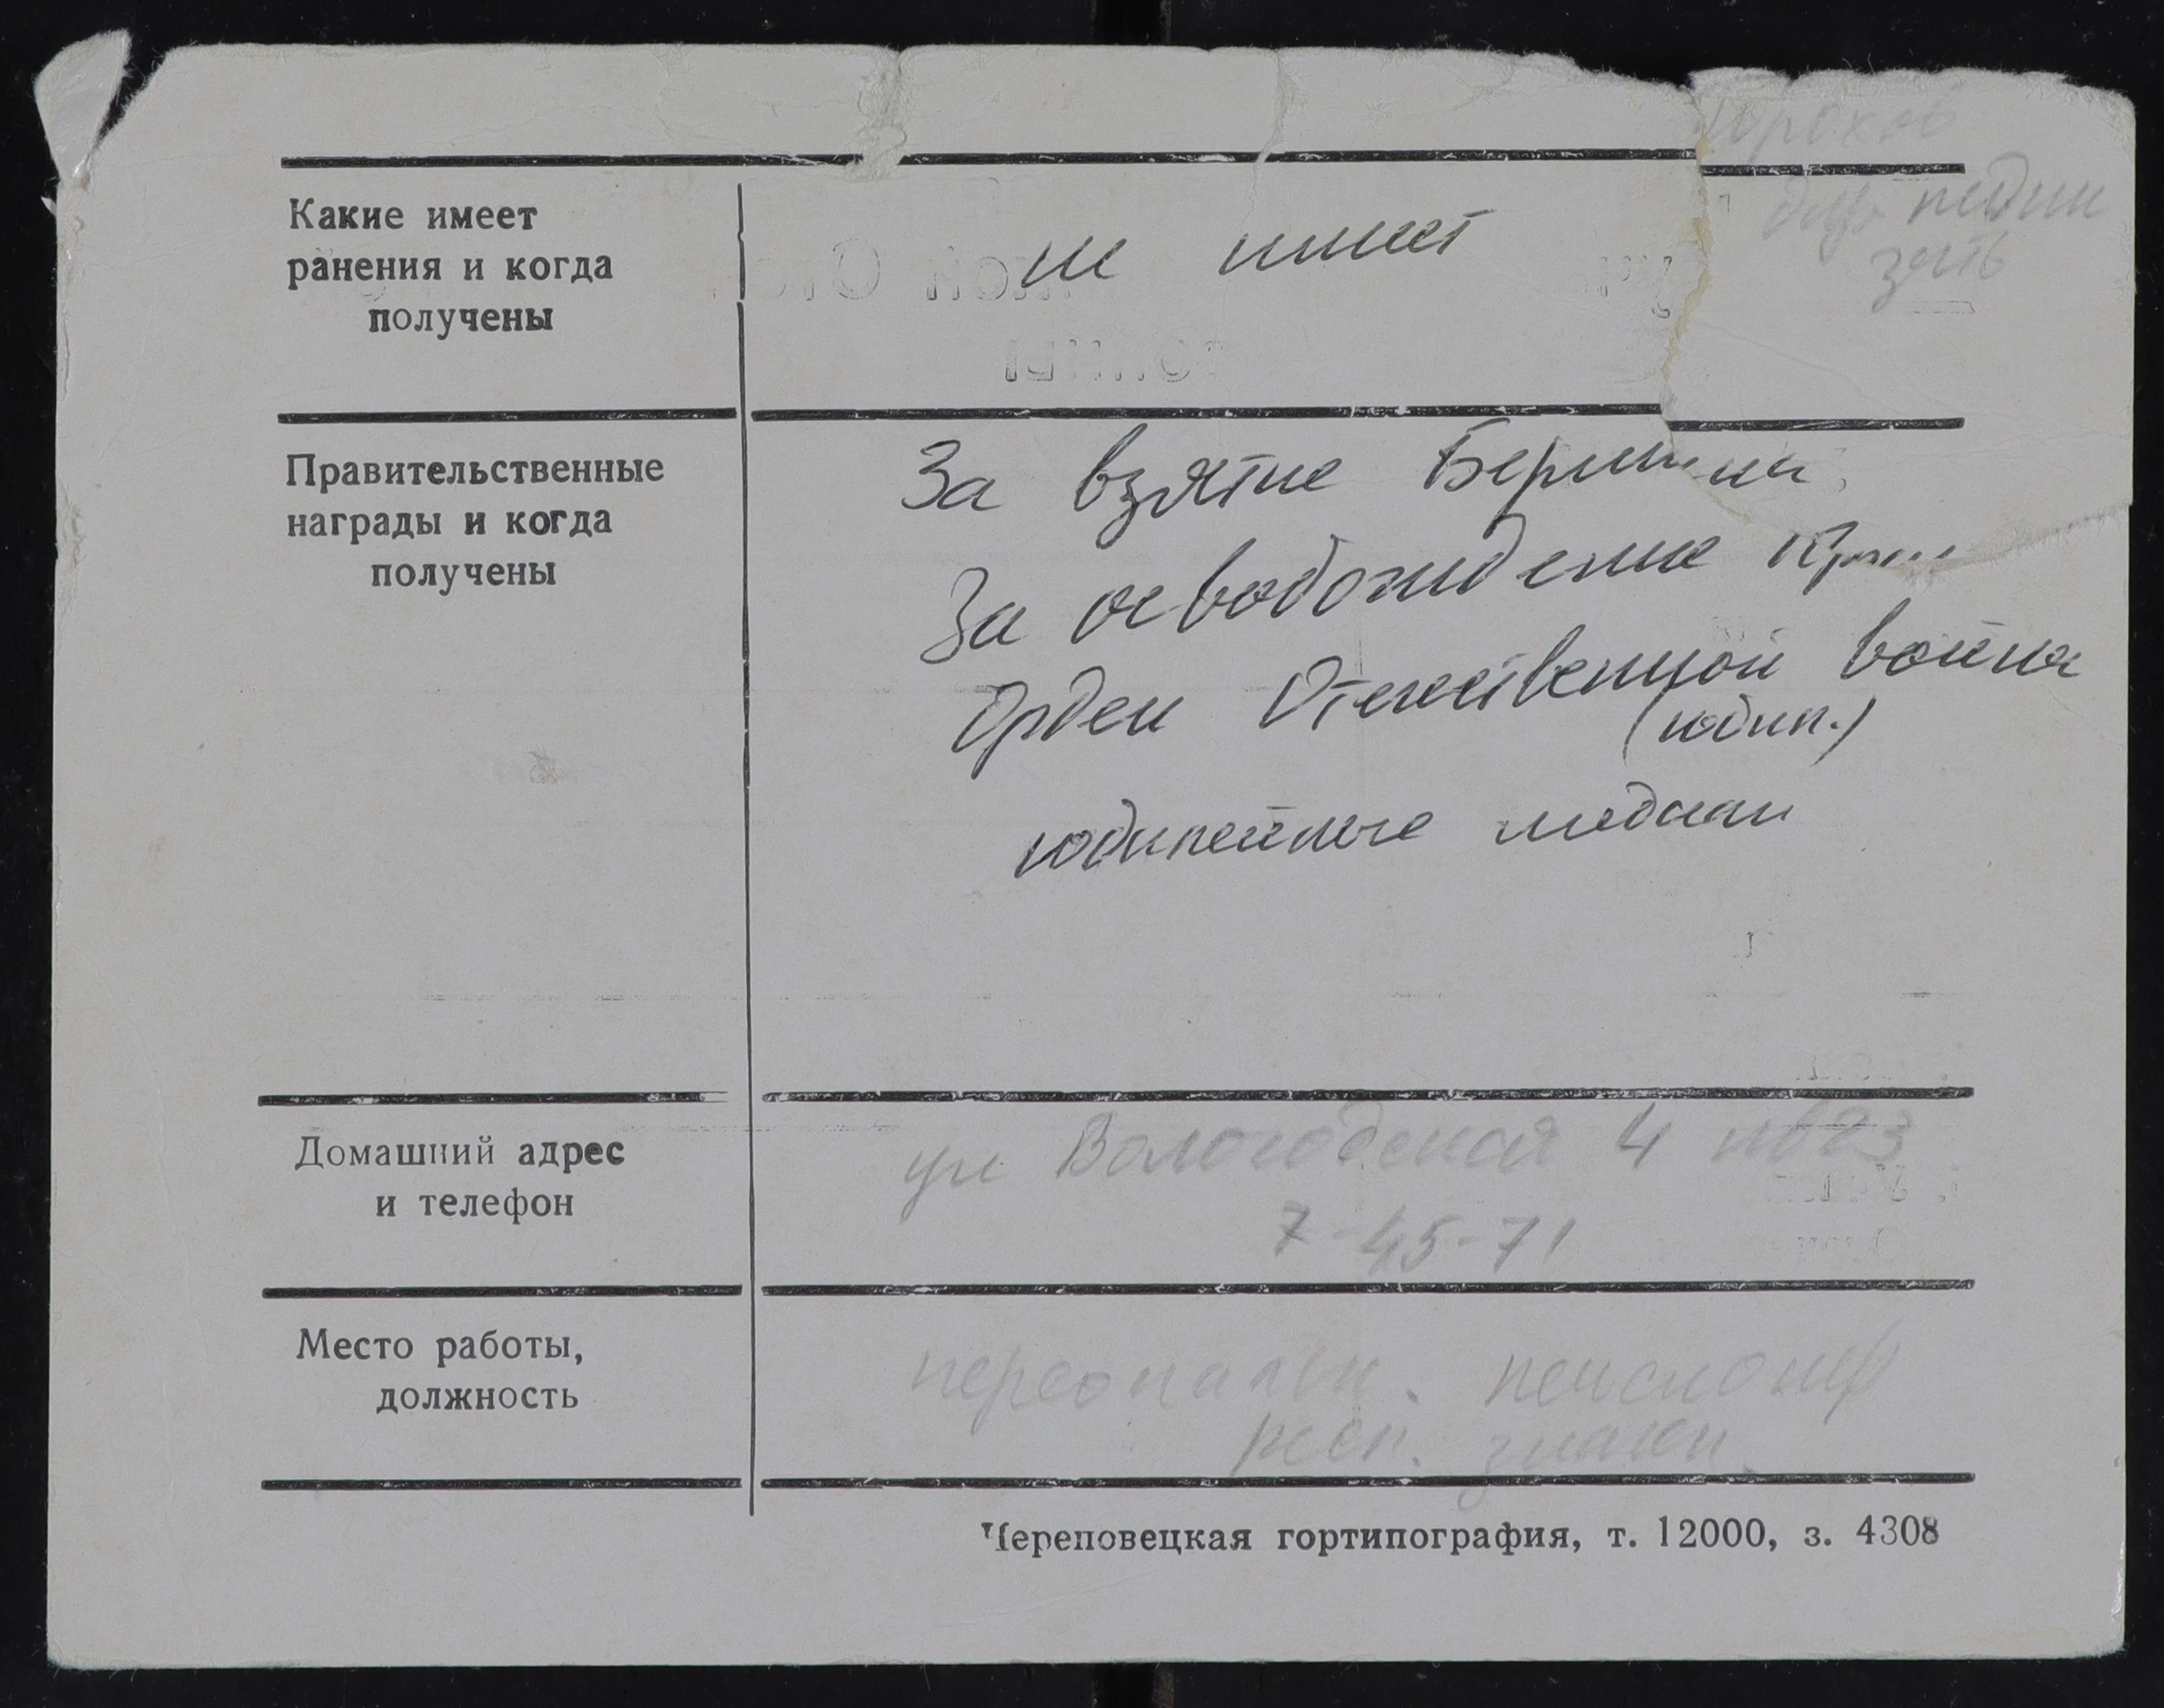 Какие имеет
ранения и когда
получены
не имеет
Правительственные
награды и когда
получены
За взятие Берлина
За освобождение
Орден Отечественной война
(юбил.)
юбилейные медали
Домашний адрес
и телефон
ул Вологодская 4 кв 23
7-45-71
Место работы,
должность
персональн. пенсионер
респ. значен.
Череповецкая гортипография, т. 12000, з. 4308